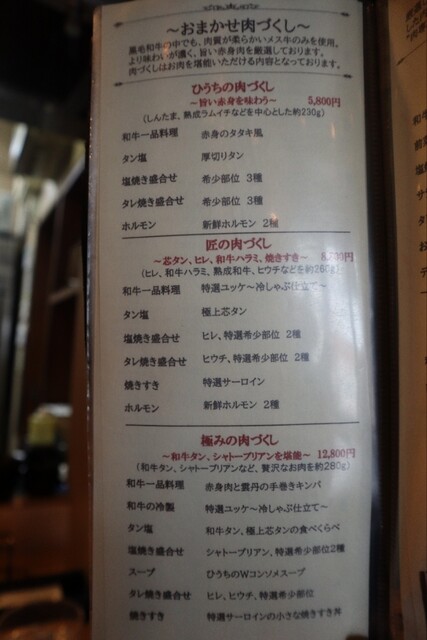 ～おまかせ肉づくし～
黒毛和牛の中でも、肉質が柔らかいメス牛のみを使用。
より味わいが濃く、旨い赤身肉を厳選しております。
肉づくしはお肉を堪能いただける内容となっております。
ひうちの肉づくし
～旨い赤身を味わう～ 5,800円
(しんたま、熟成ラムイチなどを中心とした約230g)
和牛一品料理 赤身のタタキ風
タン塩 厚切りタン
塩焼き盛合せ 希少部位 3種
タレ焼き盛合せ 希少部位 3種
ホルモン 新鮮ホルモン 2種
匠の肉づくし
～芯タン、ヒレ、和牛ハラミ、焼きすき～
(ヒレ、和牛ハラミ、熟成和牛、ヒウチなどを約260g)
和牛一品料理 特選ユッケ～冷しゃぶ仕立て～
タン塩 極上芯タン
塩焼き盛合せ ヒレ、特選希少部位 2種
タレ焼き盛合せ ヒウチ、特選希少部位 2種
焼きすき 特選サーロイン
ホルモン 新鮮ホルモン 2種
極みの肉づくし
～和牛タン、シャトーブリアンを堪能～ 12,800円
(和牛タン、シャトーブリアンなど、贅沢なお肉を約280g)
和牛一品料理 赤身肉と雲丹の手巻きキンパ
和牛の冷製 特選ユッケ～冷しゃぶ仕立て～
タン塩 和牛タン、極上芯タンの食べくらべ
塩焼き盛合せ シャトーブリアン、特選希少部位2種
スープ ひうちのWコンソメスープ
タレ焼き盛合せ ヒレ、ヒウチ、特選希少部位
焼きすき 特選サーロインの小さな焼きすき丼